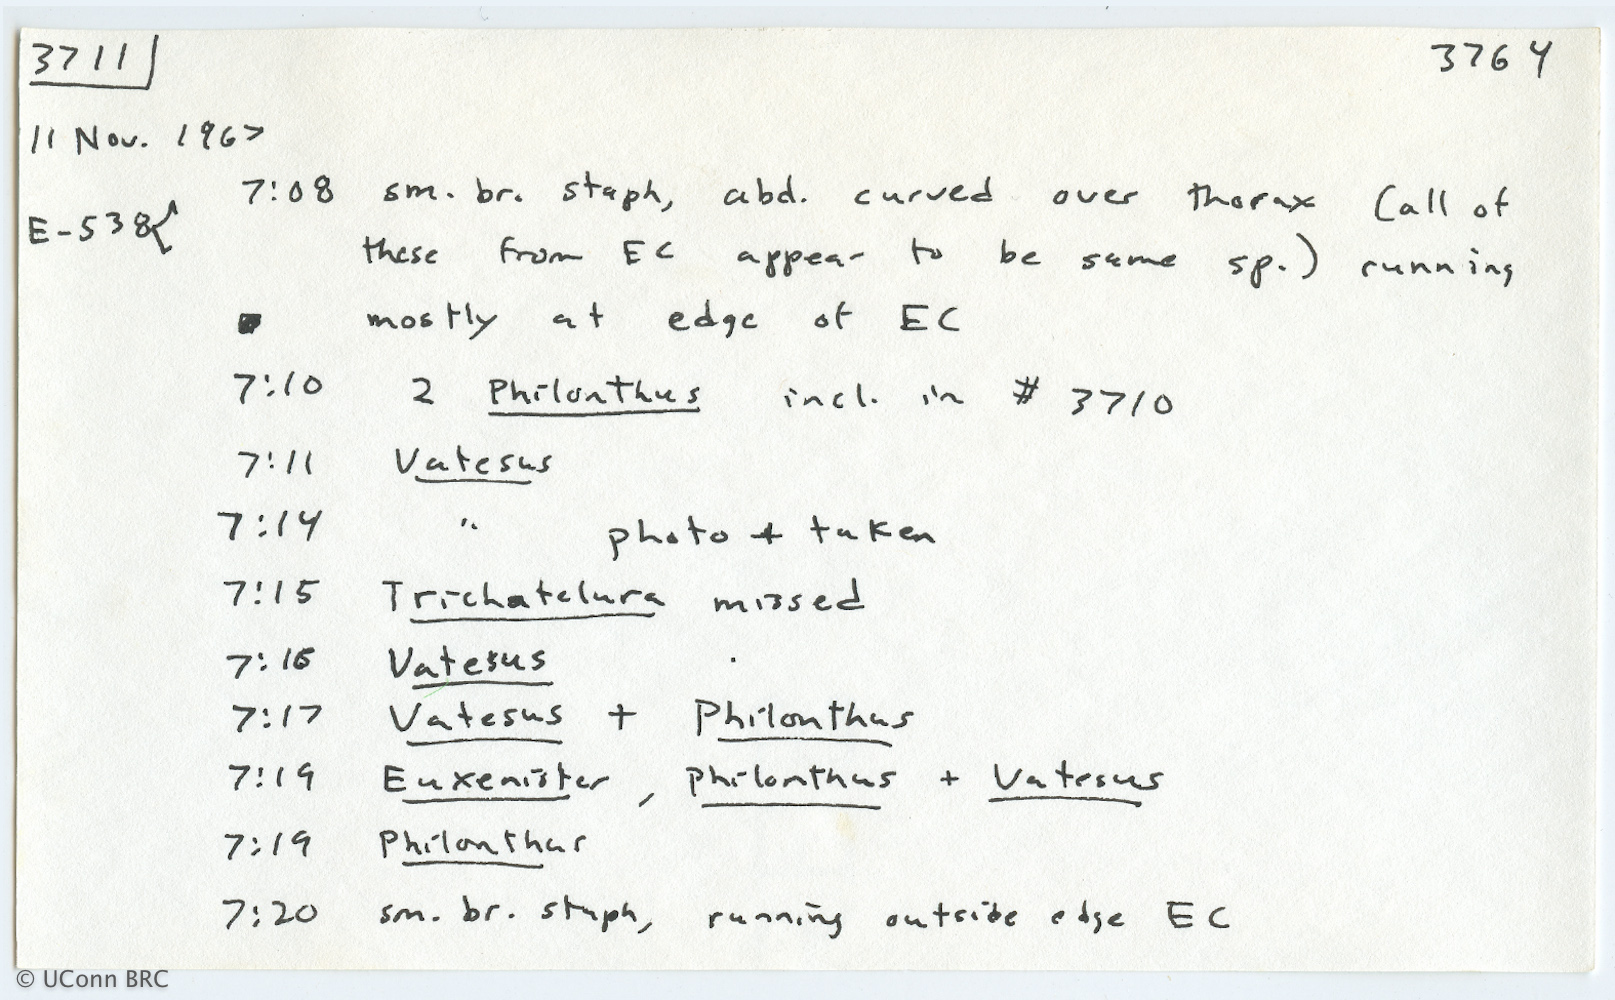 3711 3764
11 Nov. 1967
7:08 sm. br. staph, abd. curved over thorax (all of
E-538
these from EC appear to be same sp.) running
mostly at edge of EC
7:10 2 Philonthus incl. in # 3710
7:11 Vatesus
7:14 " photo + taken
7:15 Trichatelura missed
7:16 Vatesus
7:17 Vatesus + Philonthus
7:19 Euxenister, Philonthus + Vatesus
7:19 Philonthus
7:20 sm. br. staph, running outside edge EC
© UConn BRC